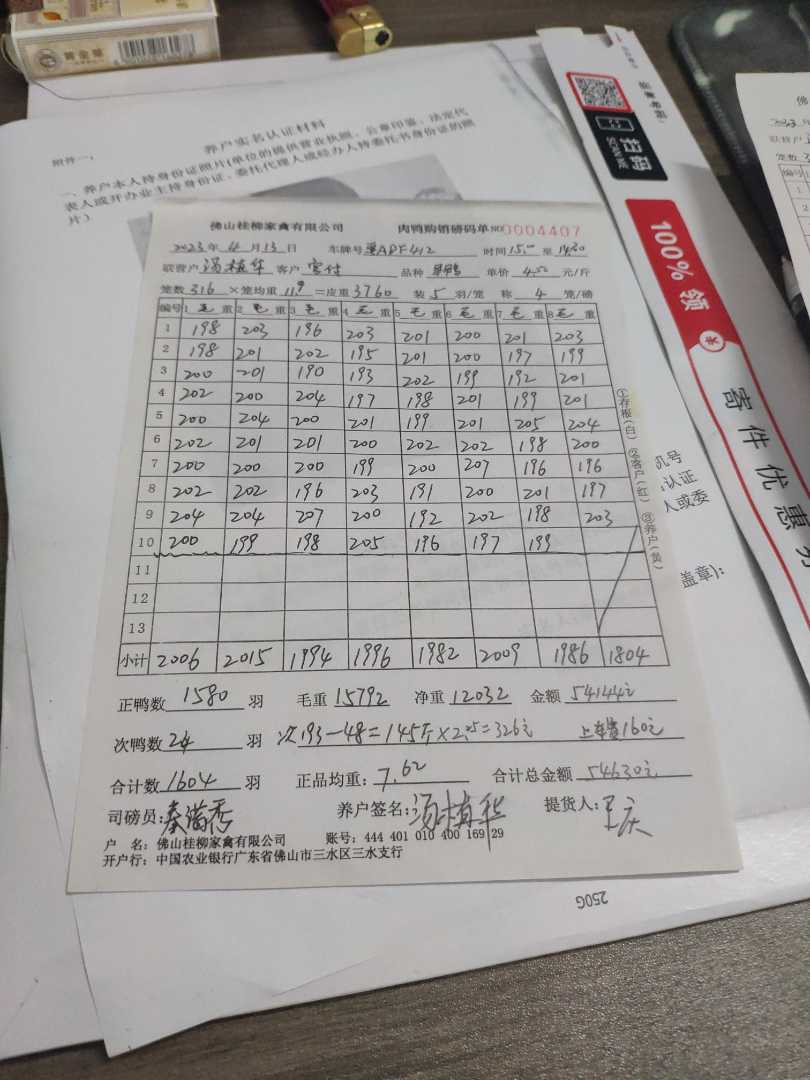 养户实名认证材料
附件一:
一、养户本人持身份证照片(单位的提供营业执照、公章印鉴、法定代
表人或开办业主持身份证、委托代理人或经办人持委托书身份证的照
片)
扫码
SCAN ME
100% 领
寄件优惠
机号
认证
人或委
盖章):
250G
佛山桂柳家禽有限公司 肉鸭购销磅码单 NO 0004407
2023 年 4 月 13 日 车牌号 粤APF412 时间 15:00 至
联营户 汤植华 客户 品种 单价 4.50 元/斤
笼数 316 ×笼均重 11.9 =皮重 3760 装 5 羽/笼 称 4 笼/磅
编号 1 毛 重 2 毛 重 3 毛 重 4 毛 重 5 毛 重 6 毛 重 7 毛 重 8 毛 重
1 198 203 196 203 201 200 201 203
2 198 201 202 195 201 200 197 199
3 200 201 190 193 202 199 192 201
4 202 200 204 197 198 201 199 201
5 200 204 200 201 199 201 205 204
6 202 201 201 200 202 202 198 200
7 200 200 200 199 200 207 196 196
8 202 202 196 203 191 200 201 197
9 204 204 207 200 192 202 198 203
10 200 199 198 205 196 197 199
11
12
13
小计 2006 2015 1994 1996 1982 2009 1986 1804
①存根(白) ②客户(红) ③养户(黄)
正鸭数 1580 羽 毛重 15792 净重 12032 金额 54144元
次鸭数 24 羽 次193-48=145斤×2.25=326元 上车费160元
合计数 1604 羽 正品均重: 7.62 合计总金额 54630元
司磅员: 秦满秀 养户签名: 汤植华 提货人: 王庆
户 名: 佛山桂柳家禽有限公司 账号: 444 401 010 400 169 29
开户行: 中国农业银行广东省佛山市三水区三水支行